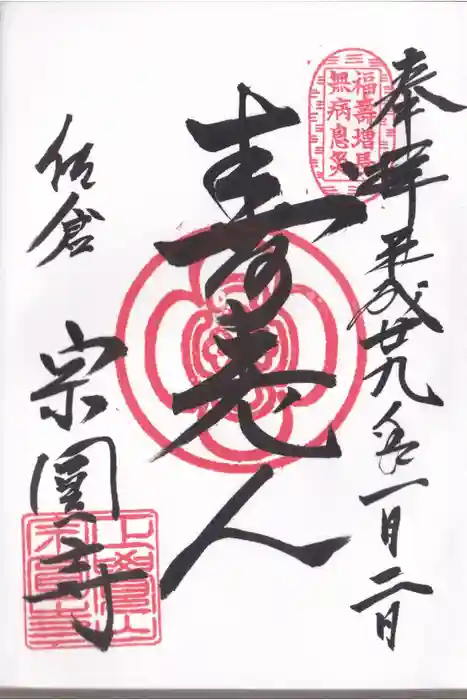 奉拝
平成廿九年一月二日
福壽増長
無病息災
寿老人
佐倉
宗圓寺